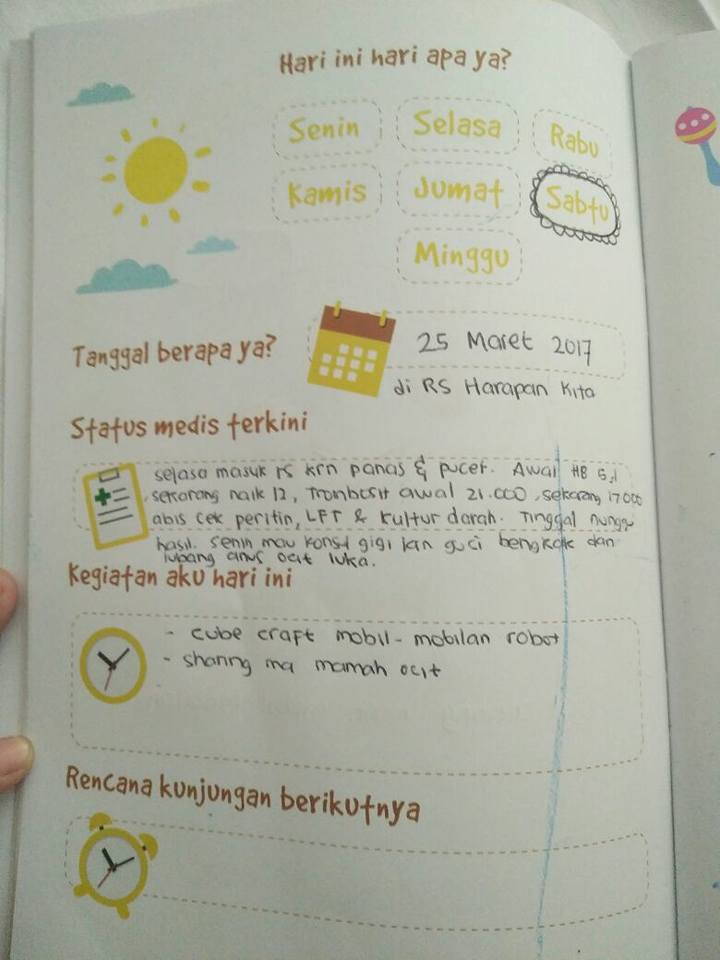 Hari ini hari apa ya?
Senin Selasa Rabu
Kamis Jumat Sabtu
Minggu
Tanggal berapa ya?
25 Maret 2017
di RS Harapan Kita
Status medis terkini
selasa masuk rs krn panas & pucet. Awal HB 5,1
sekarang naik 12, Trombosit awal 21.000, sekarang 17000
abis cek peritin, LFT & kultur darah. Tinggal nunggu
hasil. senin mau konsul gigi krn bengkak dan
lubang anus ocit luka.
Kegiatan aku hari ini
- cube craft mobil-mobilan robot
- sharing ma mamah ocit
Rencana kunjungan berikutnya